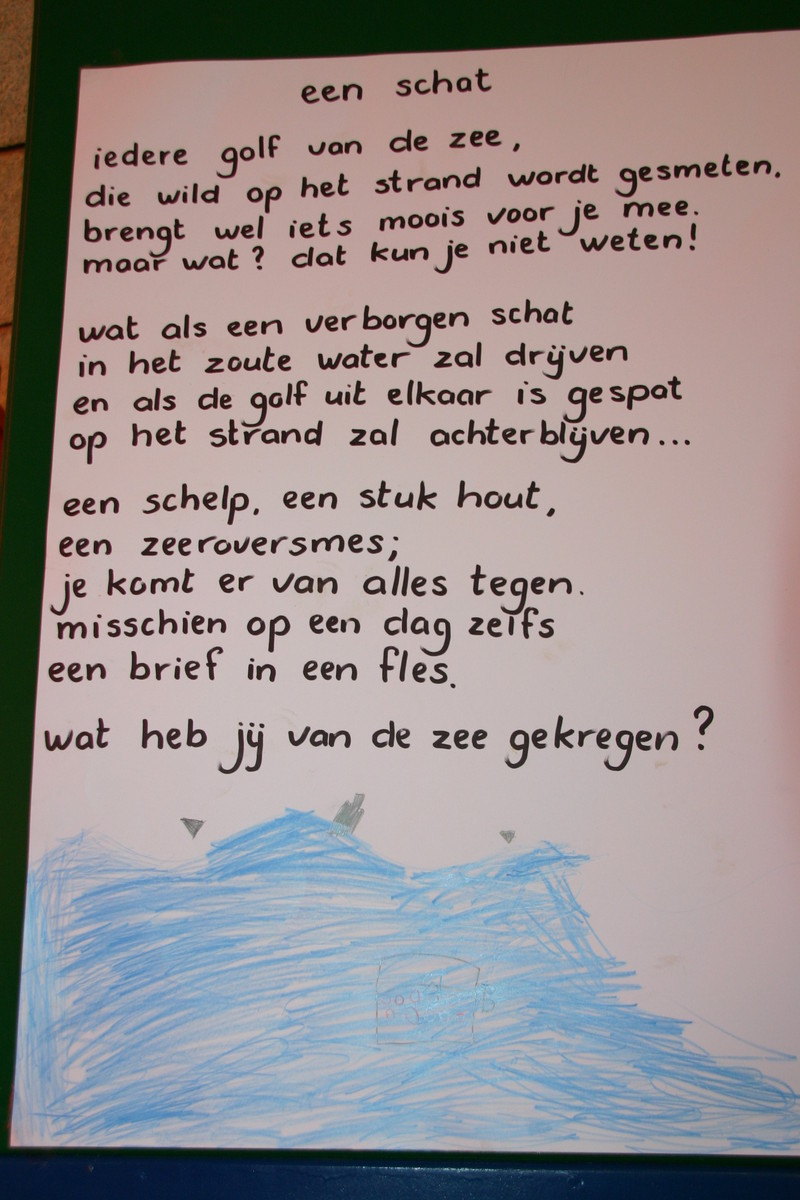 een schat
iedere golf van de zee,
die wild op het strand wordt gesmeten.
brengt wel iets moois voor je mee.
maar wat? dat kun je niet weten!
wat als een verborgen schat
in het zoute water zal drijven
en als de golf uit elkaar is gespat
op het strand zal achterblijven...
een schelp. een stuk hout,
een zeeroversmes;
je komt er van alles tegen.
misschien op een dag zelfs
een brief in een fles.
wat heb jij van de zee gekregen?